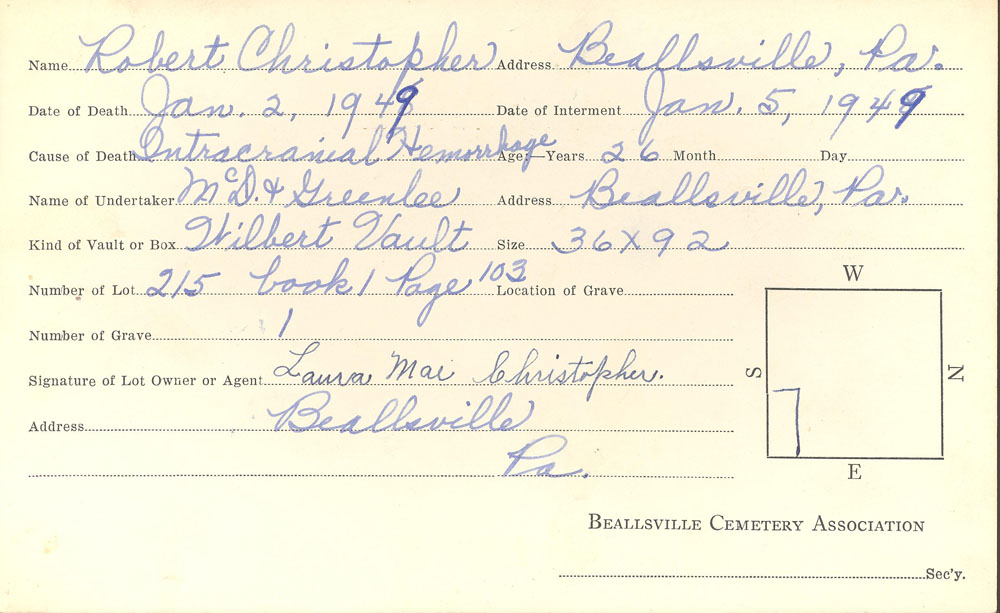 Name Robert Christopher Address Beallsville, Pa.
Date of Death Jan. 2, 1949 Date of Interment Jan. 5, 1949
Cause of Death Intracranial Hemorrhage Age:—Years 26 Month Day
Name of Undertaker McD. & Greenlee Address Beallsville, Pa.
Kind of Vault or Box Wilbert Vault Size 36x92
Number of Lot 215 book 1 Page 103 Location of Grave
W
Number of Grave 1
Signature of Lot Owner or Agent Laura Mae Christopher. S N
Address Beallsville
Pa. E
BEALLSVILLE CEMETERY ASSOCIATION
Sec'y.